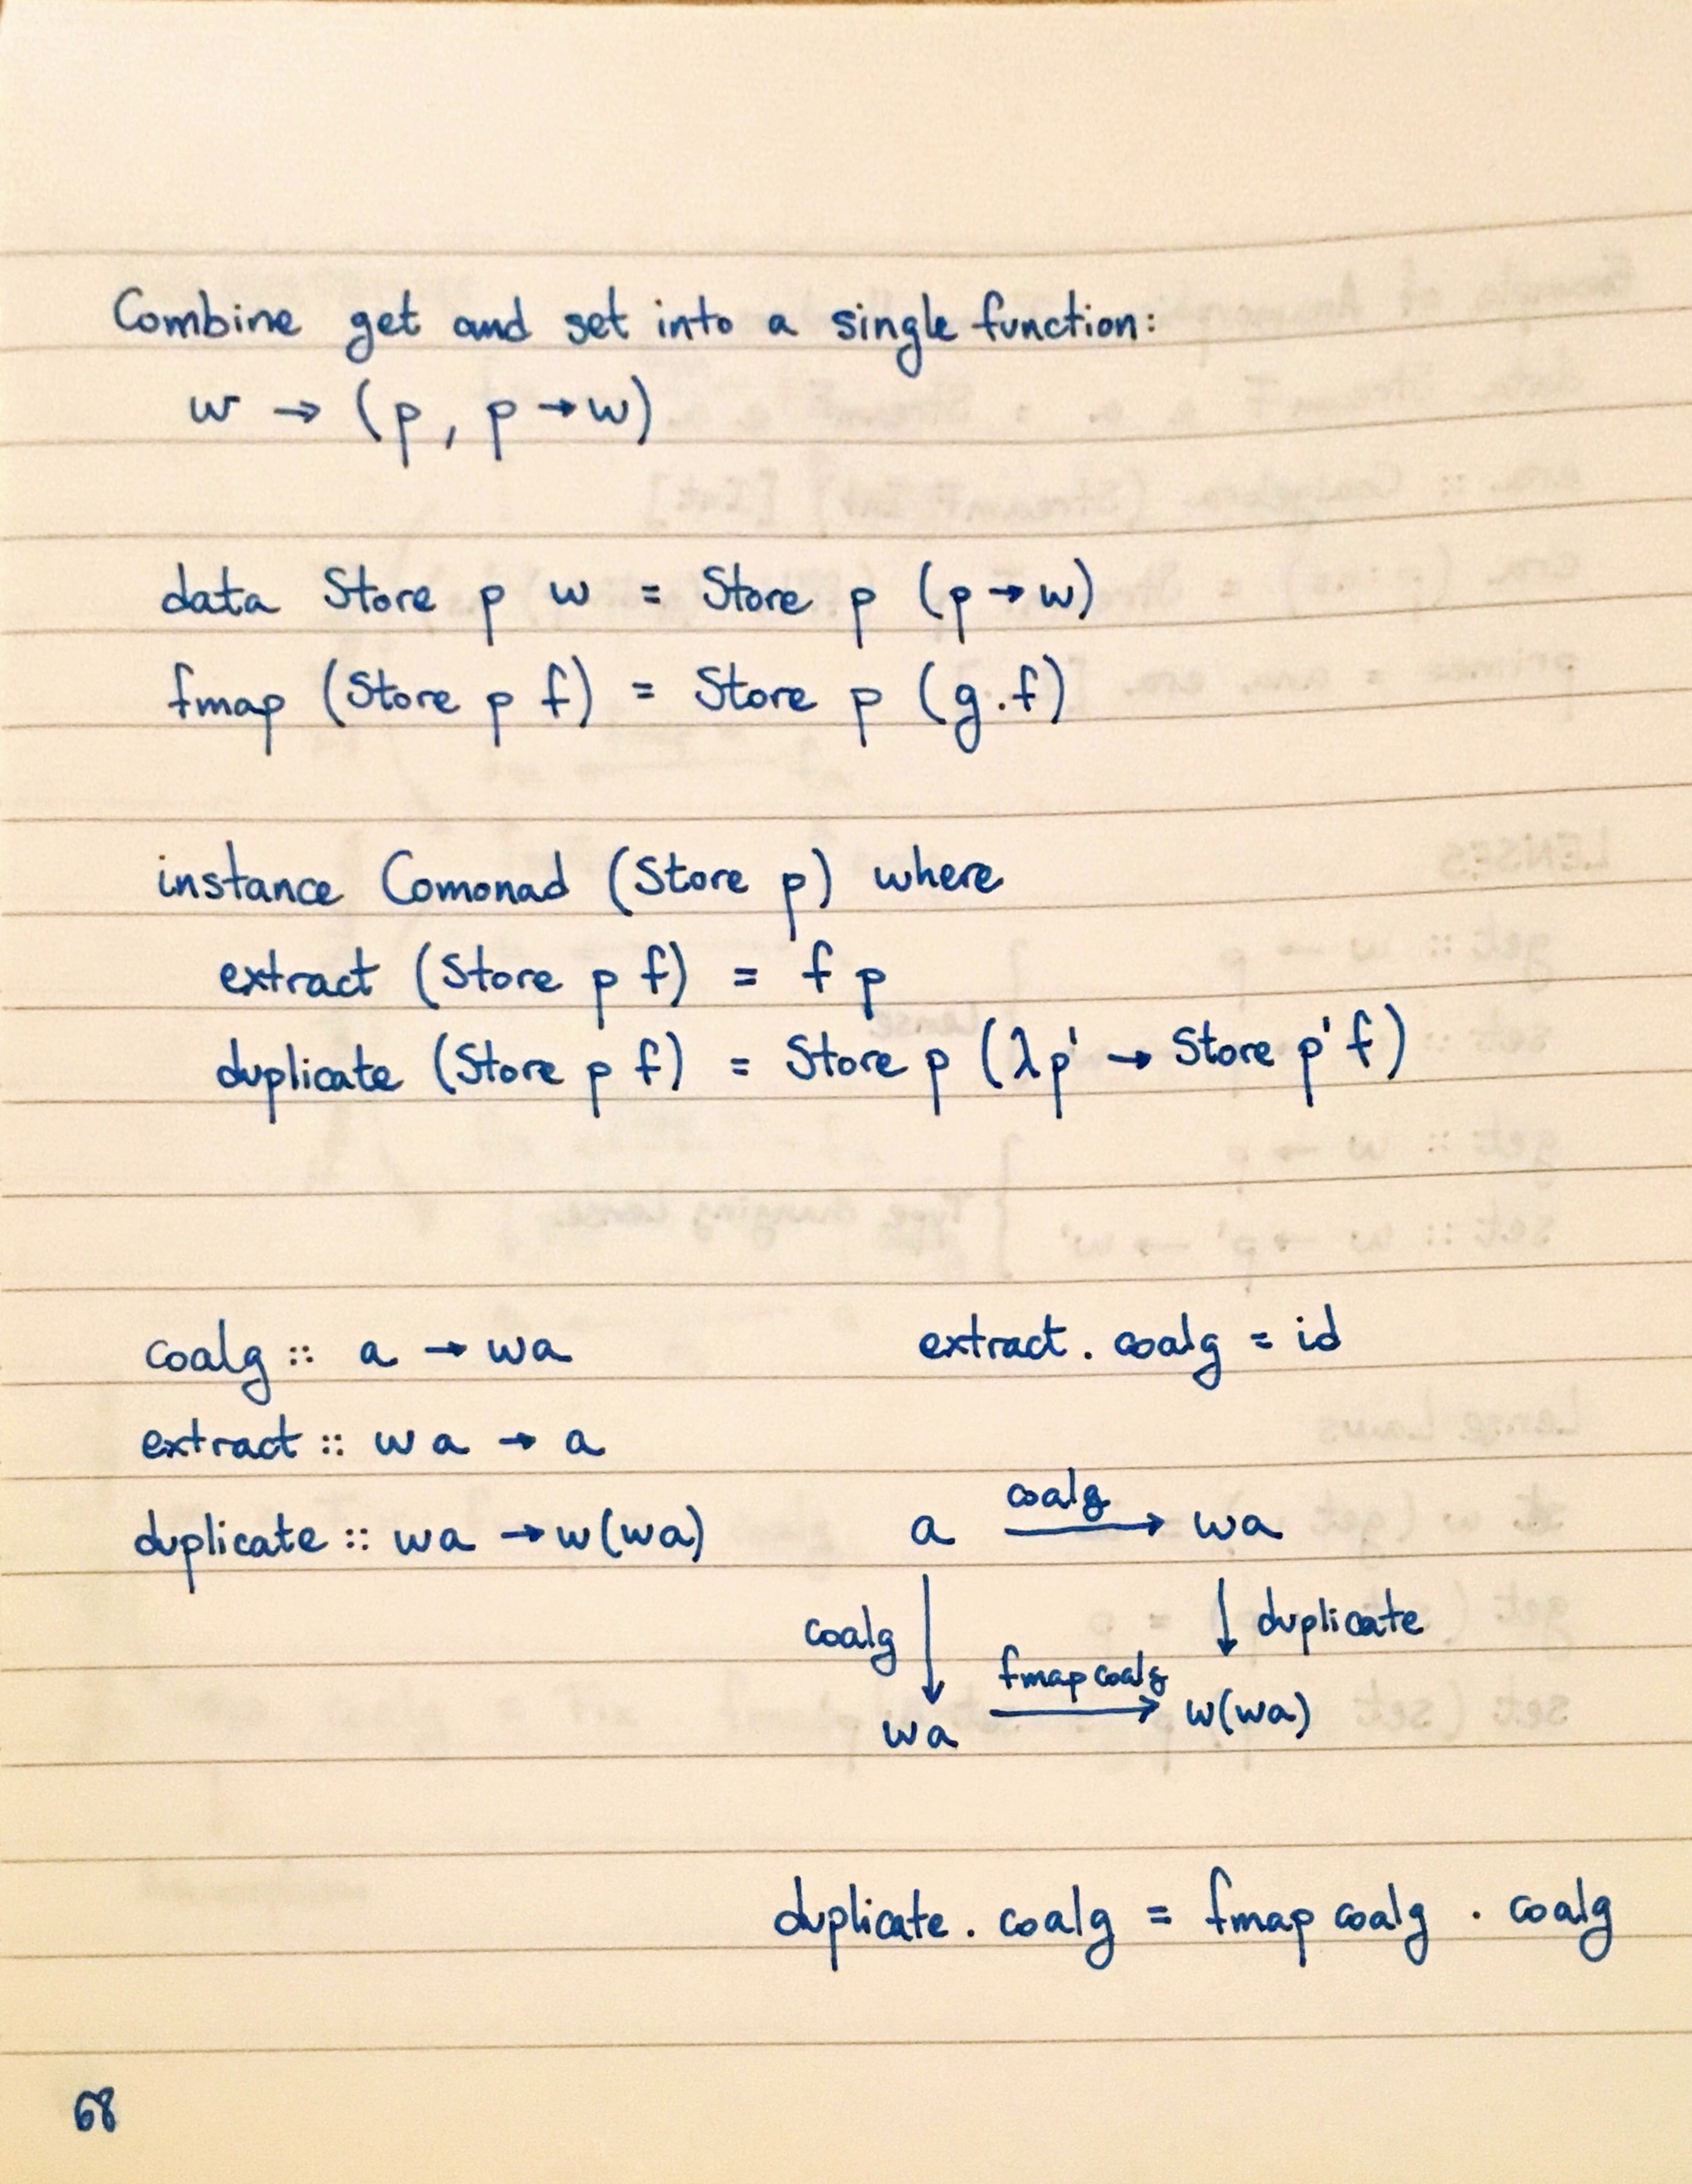 Combine get and set into a single function:
w → (p, p → w)
data Store p w = Store p (p → w)
fmap (Store p f) = Store p (g . f)
instance Comonad (Store p) where
extract (Store p f) = f p
duplicate (Store p f) = Store p (λp' → Store p' f)
coalg :: a → wa
extract . coalg = id
extract :: w a → a
duplicate :: wa → w(wa)
coalg
a → wa
coalg ↓ ↓ duplicate
fmap coalg
wa → w(wa)
duplicate . coalg = fmap coalg . coalg
68